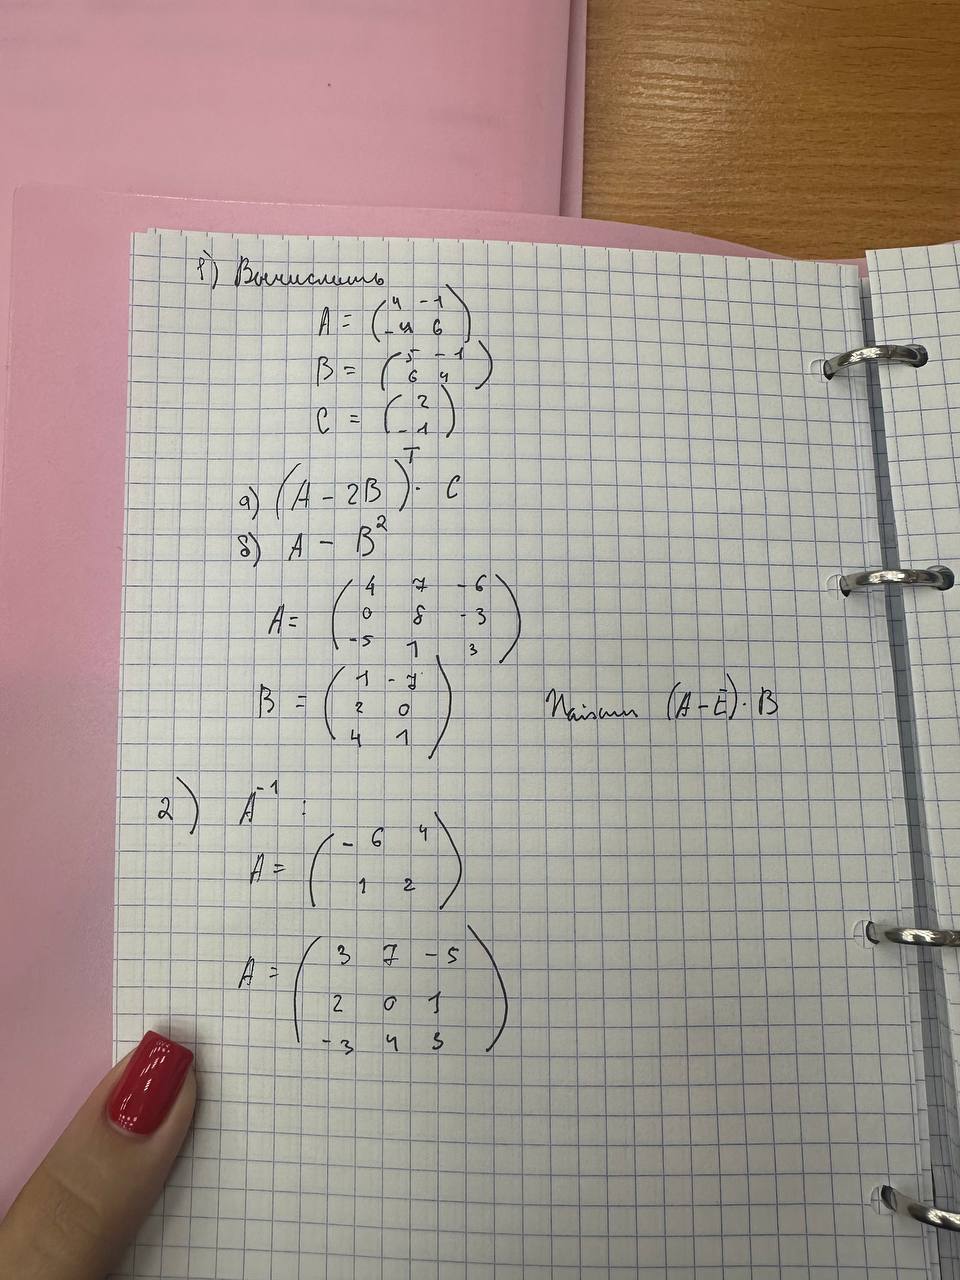 1) Вычислить
A = (4 -1
-4 6)
B = (5 -1
6 4)
C = (2
-1)
а) (A - 2B)ᵀ · C
б) A - B²
A = (4 7 -6
0 8 -3
-5 1 3)
B = (1 -7
2 0
4 1)
Найти (A-E)·B
2) A⁻¹ :
A = (-6 4
1 2)
A = (3 7 -5
2 0 1
-3 4 3)